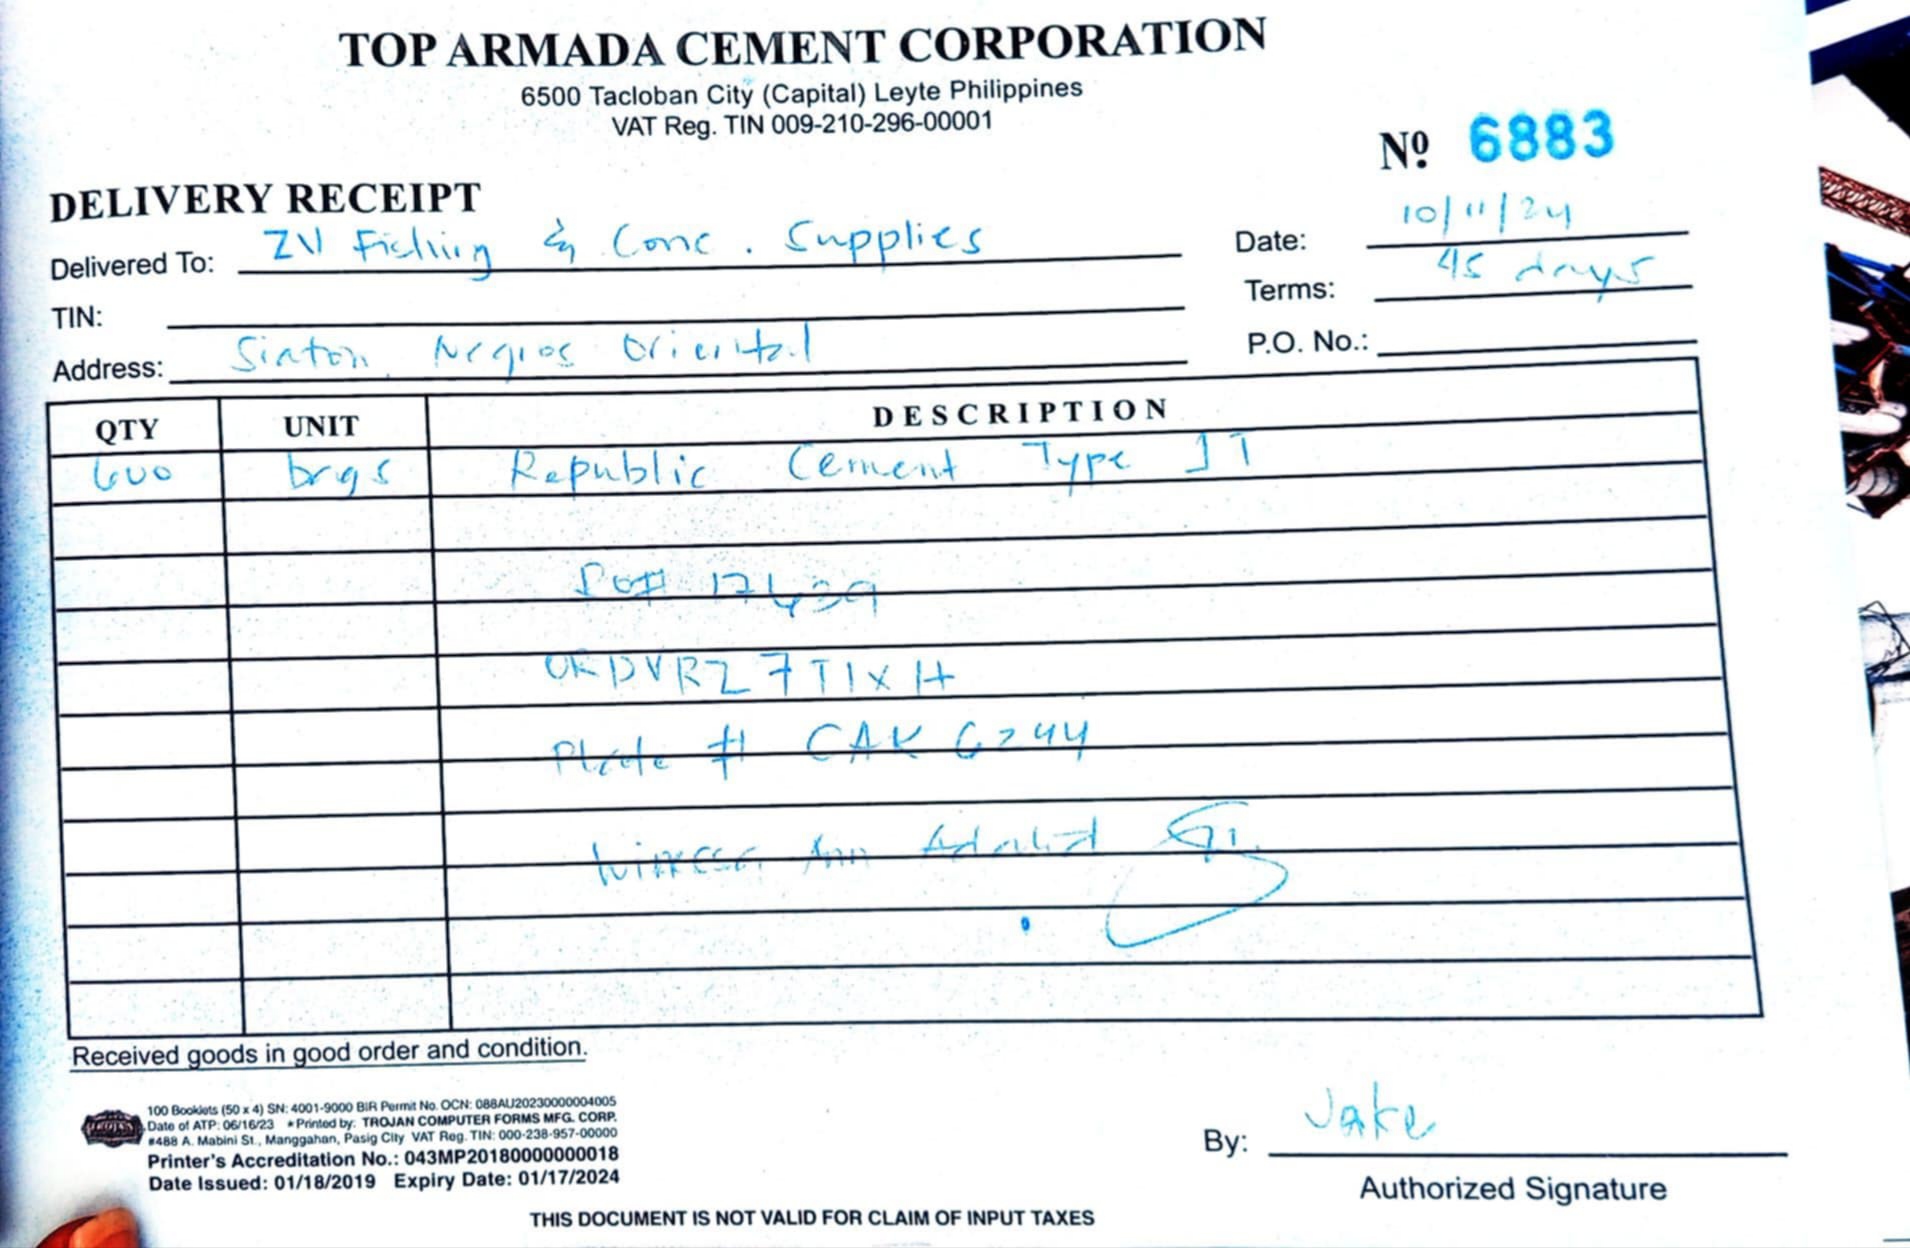 TOP ARMADA CEMENT CORPORATION
6500 Tacloban City (Capital) Leyte Philippines
VAT Reg. TIN 009-210-296-00001
Nº 6883
DELIVERY RECEIPT
Delivered To: ZV Fishing & Conc. Supplies
Date: 10/11/24
TIN:
Terms: 45 days
Address: Siaton, Negros Oriental
P.O. No.:
QTY UNIT DESCRIPTION
600 bags Republic Cement Type IT
PO# 17639
ORDVRZ7T1XH
Plate # CAK 6244
Ann
Received goods in good order and condition.
100 Booklets (50 x 4) SN: 4001-9000 BIR Permit No. OCN: 088AU20230000004005
Date of ATP: 06/16/23 *Printed by: TROJAN COMPUTER FORMS MFG. CORP.
#488 A. Mabini St., Manggahan, Pasig City VAT Reg. TIN: 000-238-957-00000
Printer's Accreditation No.: 043MP20180000000018
Date Issued: 01/18/2019 Expiry Date: 01/17/2024
By: Jake
Authorized Signature
THIS DOCUMENT IS NOT VALID FOR CLAIM OF INPUT TAXES